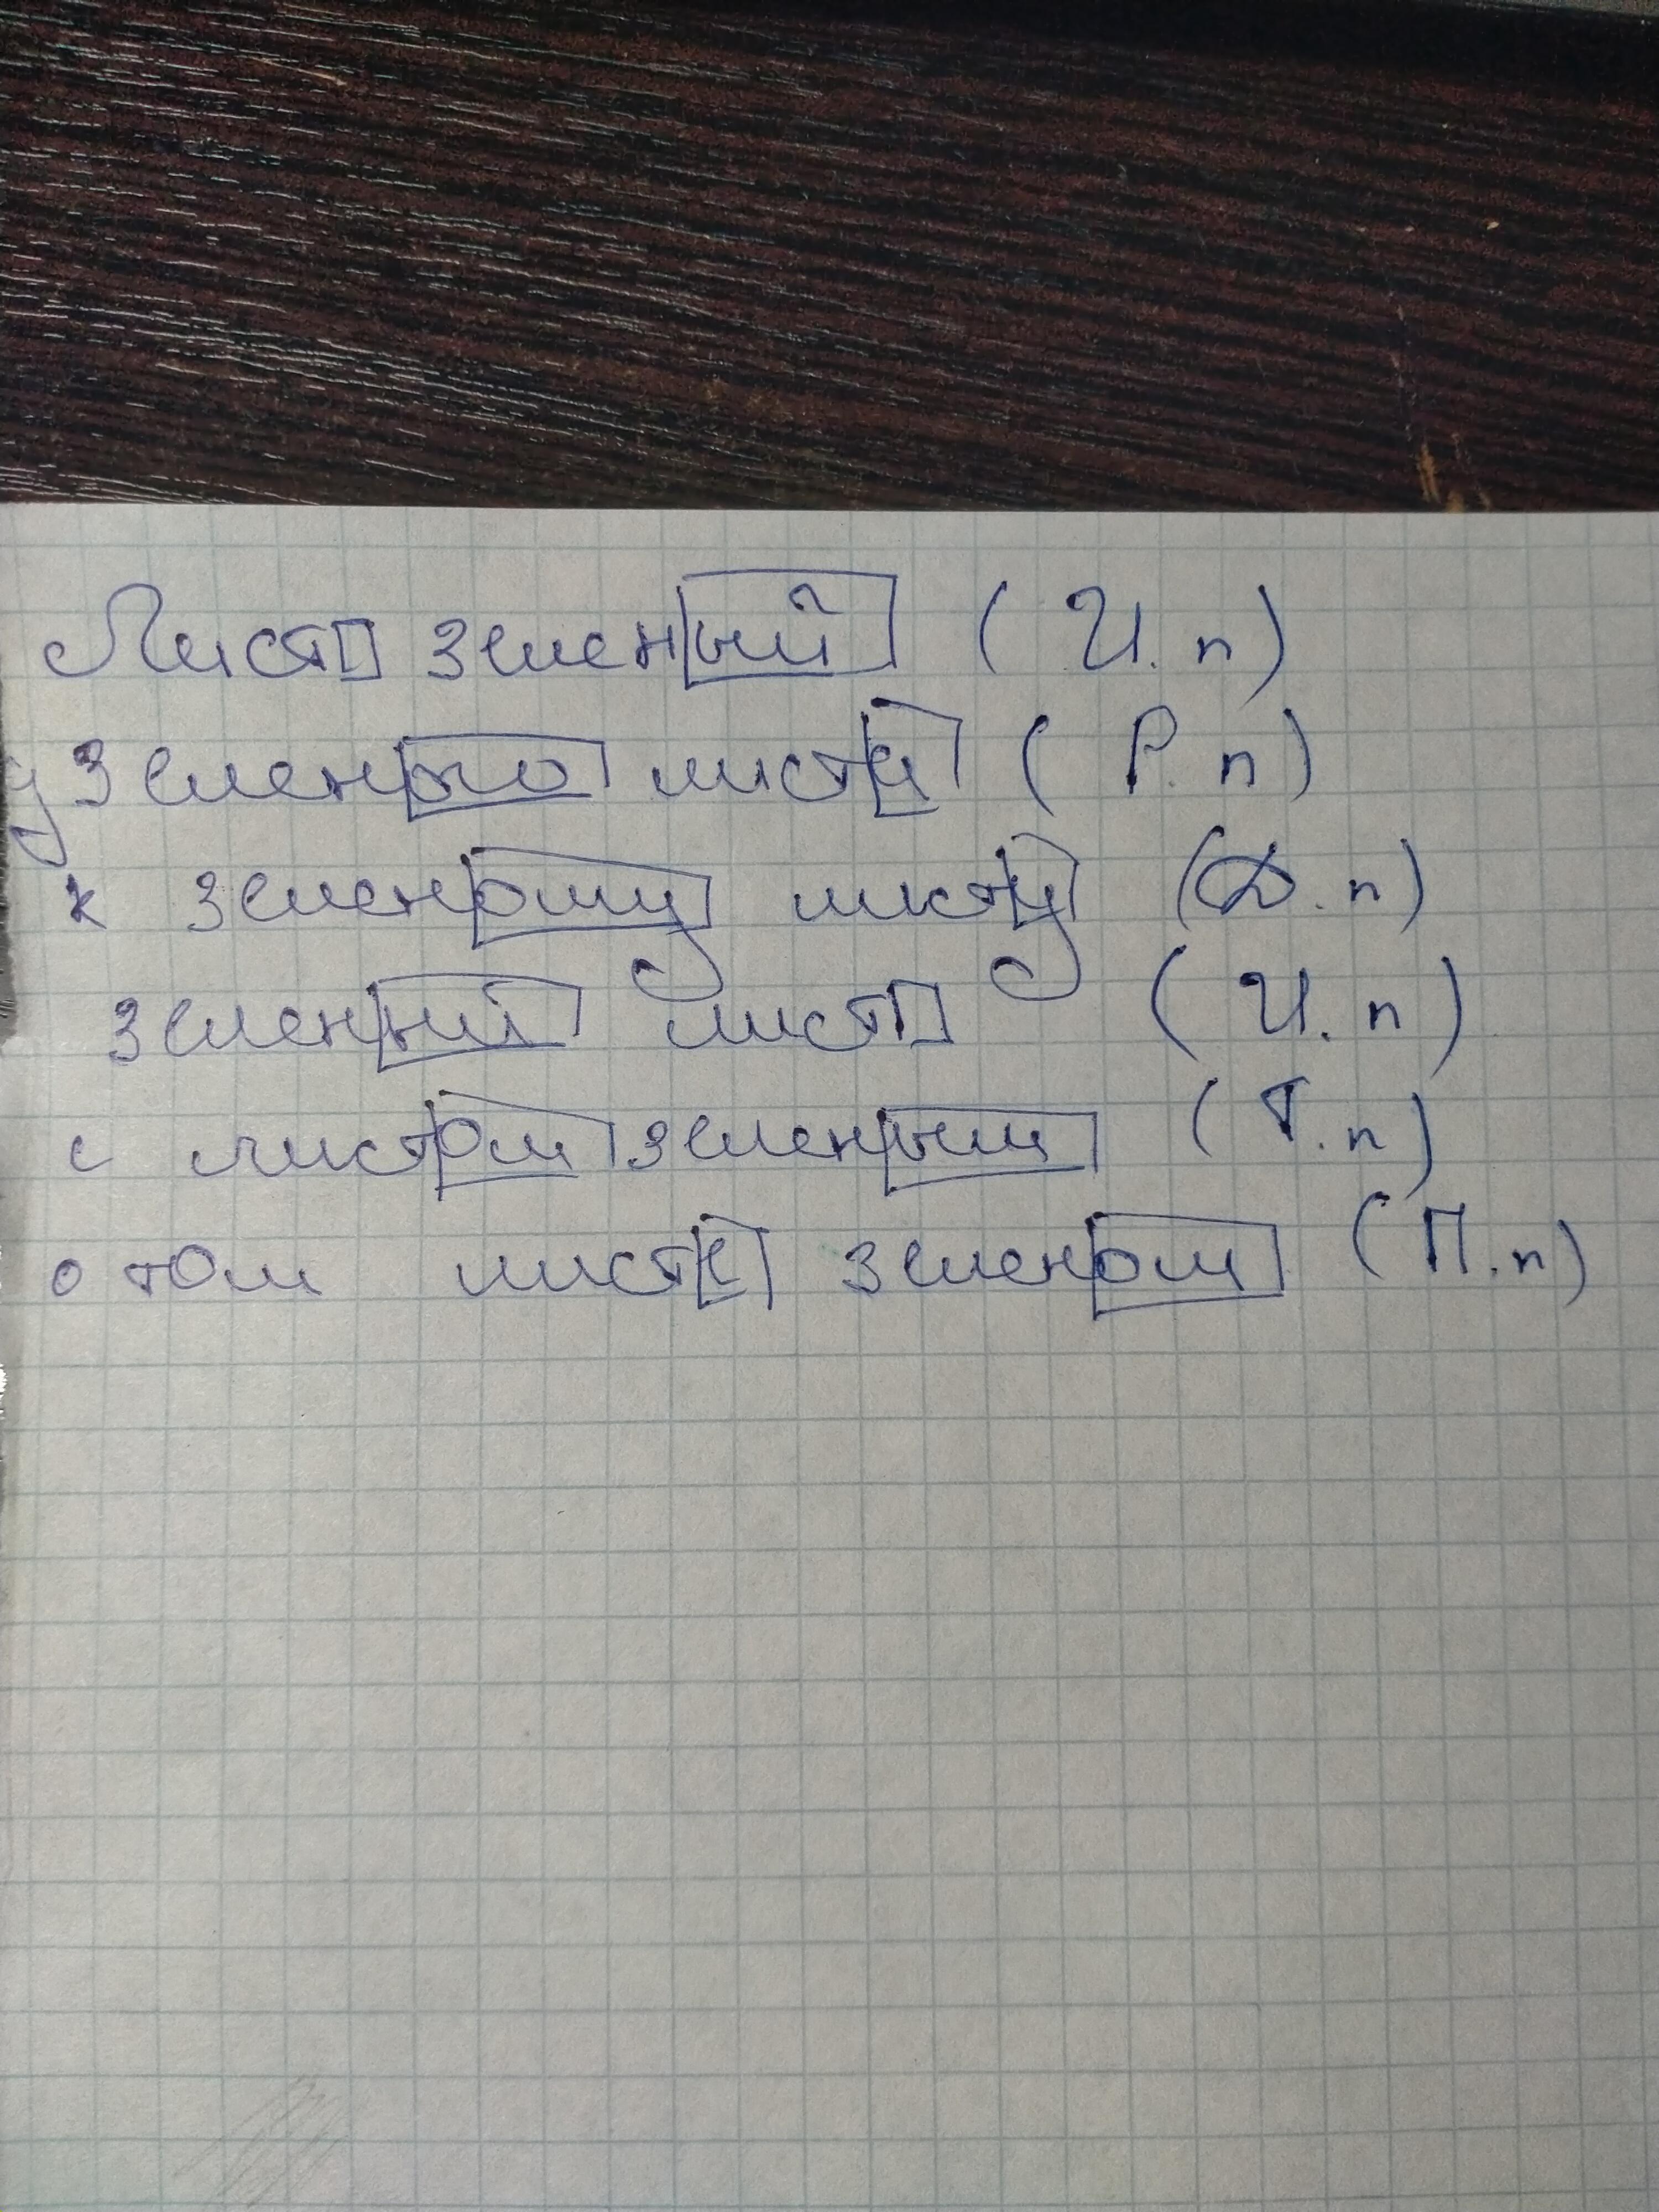 Лист зеленый (И.п)
у зеленого листа (Р.п)
к зеленому листу (Д.п)
зеленый лист (И.п)
с листом зеленым (Т.п)
о том листе зеленом (П.п)